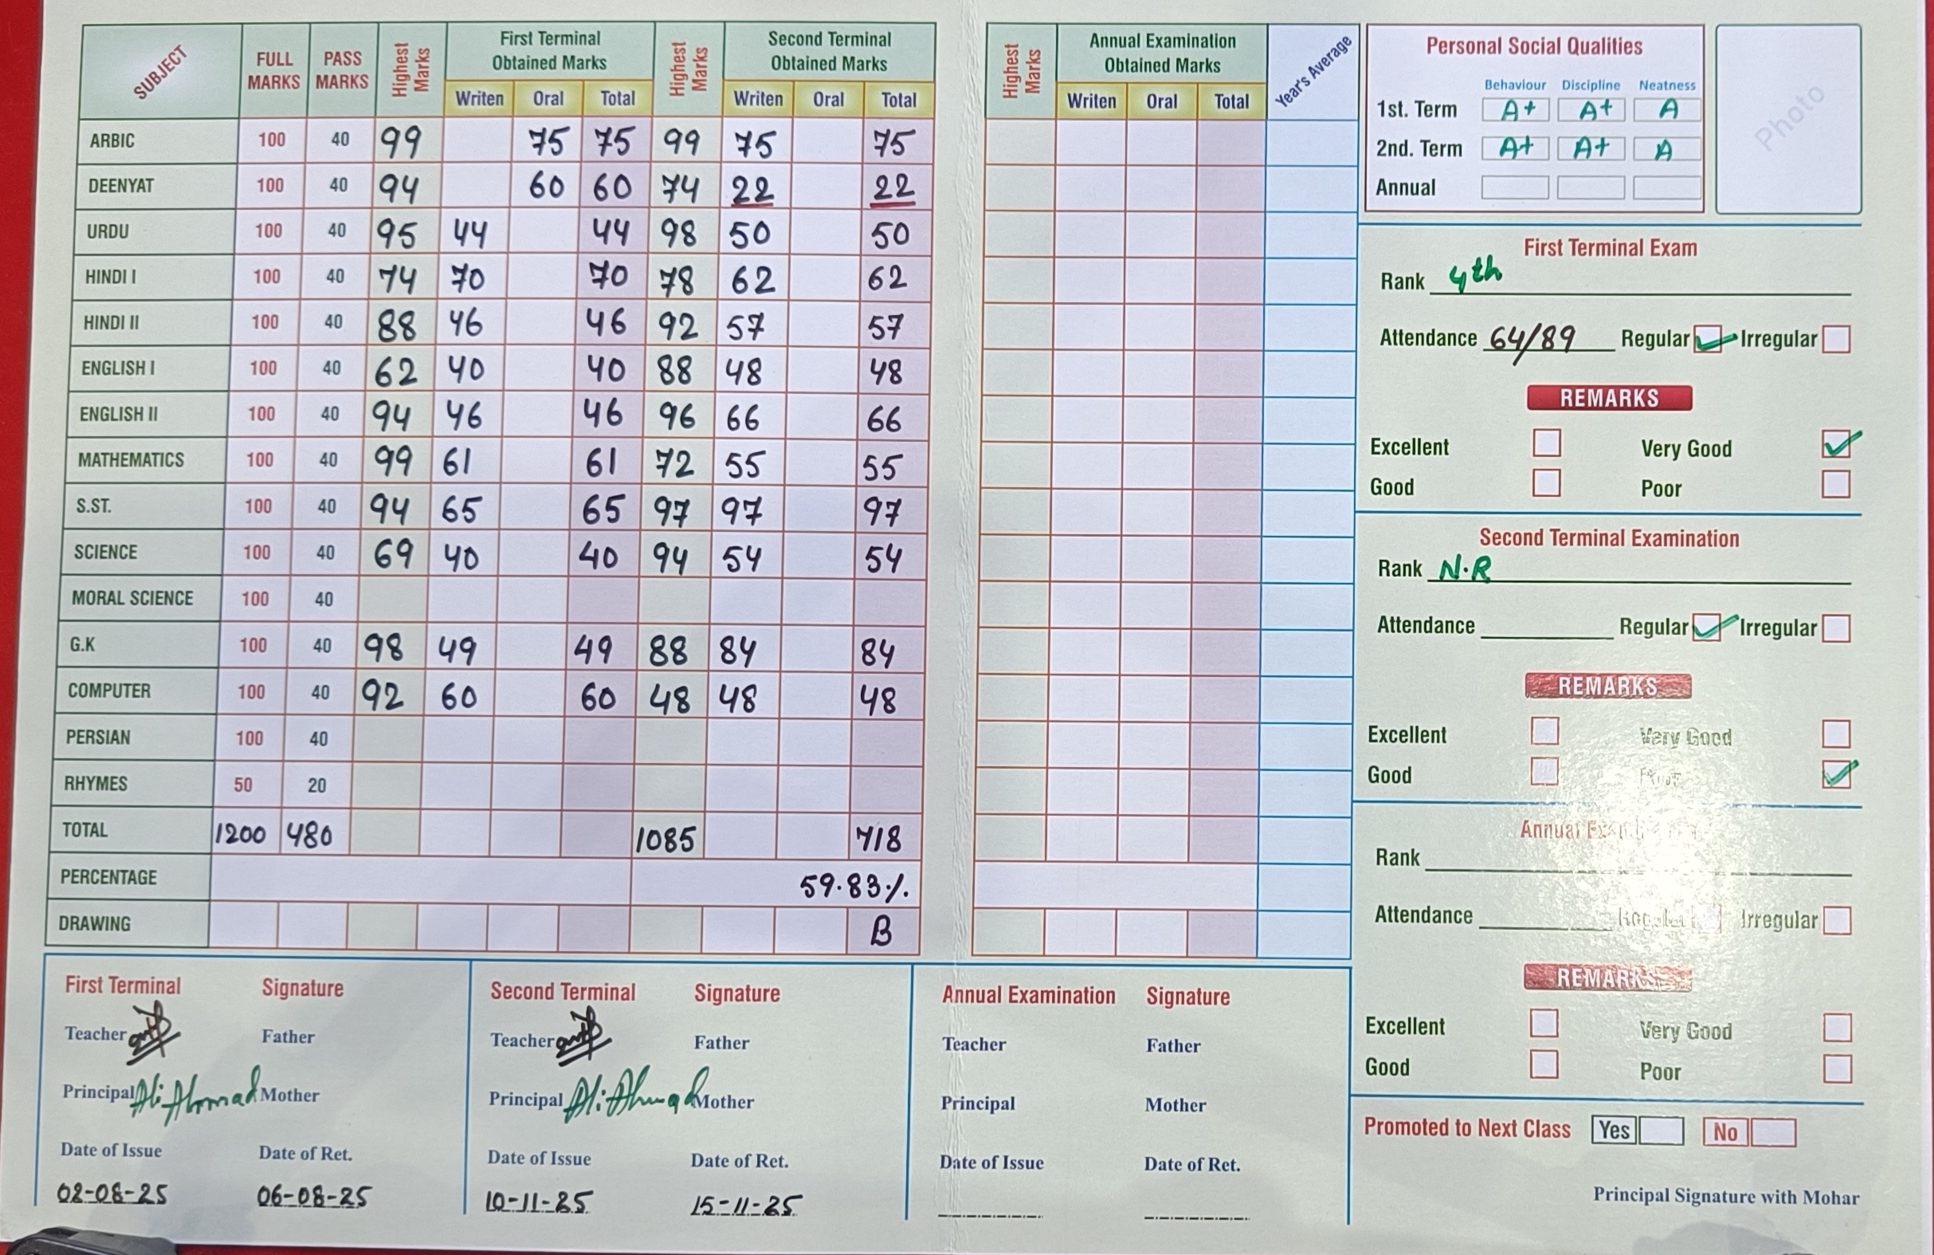 SUBJECT FULL MARKS PASS MARKS Highest Marks First Terminal Obtained Marks Highest Marks Second Terminal Obtained Marks
Writen Oral Total Writen Oral Total
ARBIC 100 40 99 75 75 99 75 75
DEENYAT 100 40 94 60 60 74 22 22
URDU 100 40 95 44 44 98 50 50
HINDI I 100 40 74 70 70 78 62 62
HINDI II 100 40 88 46 46 92 57 57
ENGLISH I 100 40 62 40 40 88 48 48
ENGLISH II 100 40 94 46 46 96 66 66
MATHEMATICS 100 40 99 61 61 72 55 55
S.ST. 100 40 94 65 65 97 97 97
SCIENCE 100 40 69 40 40 94 54 54
MORAL SCIENCE 100 40
G.K 100 40 98 49 49 88 84 84
COMPUTER 100 40 92 60 60 48 48 48
PERSIAN 100 40
RHYMES 50 20
TOTAL 1200 480 1085 718
PERCENTAGE 59.83%
DRAWING B
Highest Marks Annual Examination Obtained Marks Year's Average
Writen Oral Total
Personal Social Qualities
Behaviour Discipline Neatness
1st. Term A+ A+ A
2nd. Term A+ A+ A
Annual
Photo
First Terminal Exam
Rank 4th
Attendance 64/89 Regular Irregular
REMARKS
Excellent Very Good
Good Poor
Second Terminal Examination
Rank N.R
Attendance Regular Irregular
REMARKS
Excellent Very Good
Good
Annual
Rank
Attendance Irregular
REMARKS
Excellent Very Good
Good Poor
Promoted to Next Class Yes No
Principal Signature with Mohar
First Terminal Signature
Teacher Father
Principal Ali Ahmad Mother
Date of Issue Date of Ret.
02-08-25 06-08-25
Second Terminal Signature
Teacher Father
Principal Ali Ahmad Mother
Date of Issue Date of Ret.
10-11-25 15-11-25
Annual Examination Signature
Teacher Father
Principal Mother
Date of Issue Date of Ret.